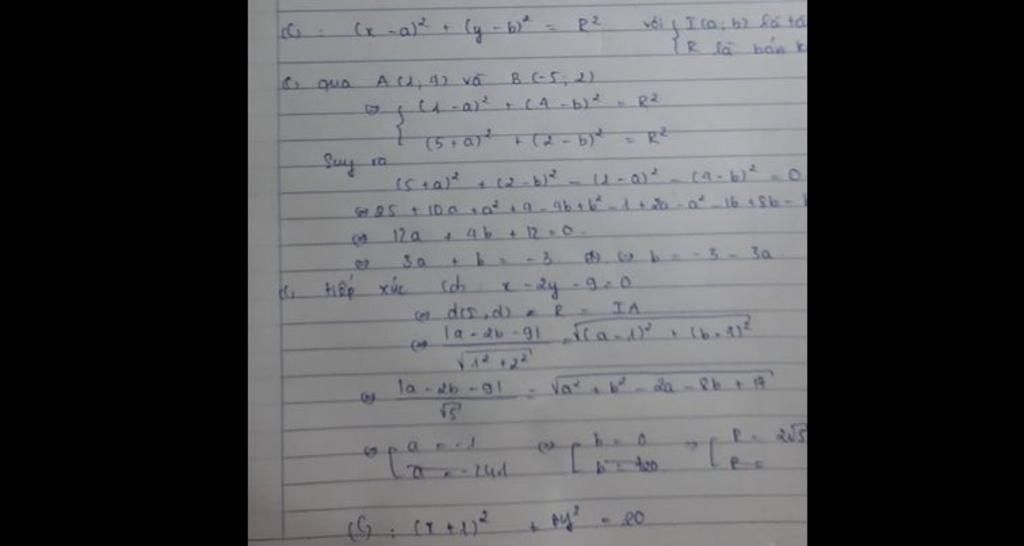 (C) : (x - a)² + (y - b)² = R² với { I(a; b) là
R là bán
(C) qua A(1; 4) và B(-5; 2)
⇔ { (1 - a)² + (4 - b)² = R²
(5 + a)² + (2 - b)² = R²
Suy ra
(5 + a)² + (2 - b)² - (1 - a)² - (4 - b)² = 0
⇔ 25 + 10a + a² + 4 - 4b + b² - 1 + 2a - a² - 16 + 8b -
⇔ 12a + 4b + 12 = 0
⇔ 3a + b = -3 ⇔ b = -3 - 3a
(C) tiếp xúc (d): x - 2y - 9 = 0
⇔ d(I, d) = R = IA
⇔ |a - 2b - 9| / √(1² + 2²) = √((a - 1)² + (b - 4)²)
⇔ |a - 2b - 9| / √5 = √(a² + b² - 2a - 8b + 17)
⇔ [ a = -1 ⇔ [ b = 0 ⇒ [ R = 2√5
a = -241 b = 720 R =
(C) : (x + 1)² + y² = 20